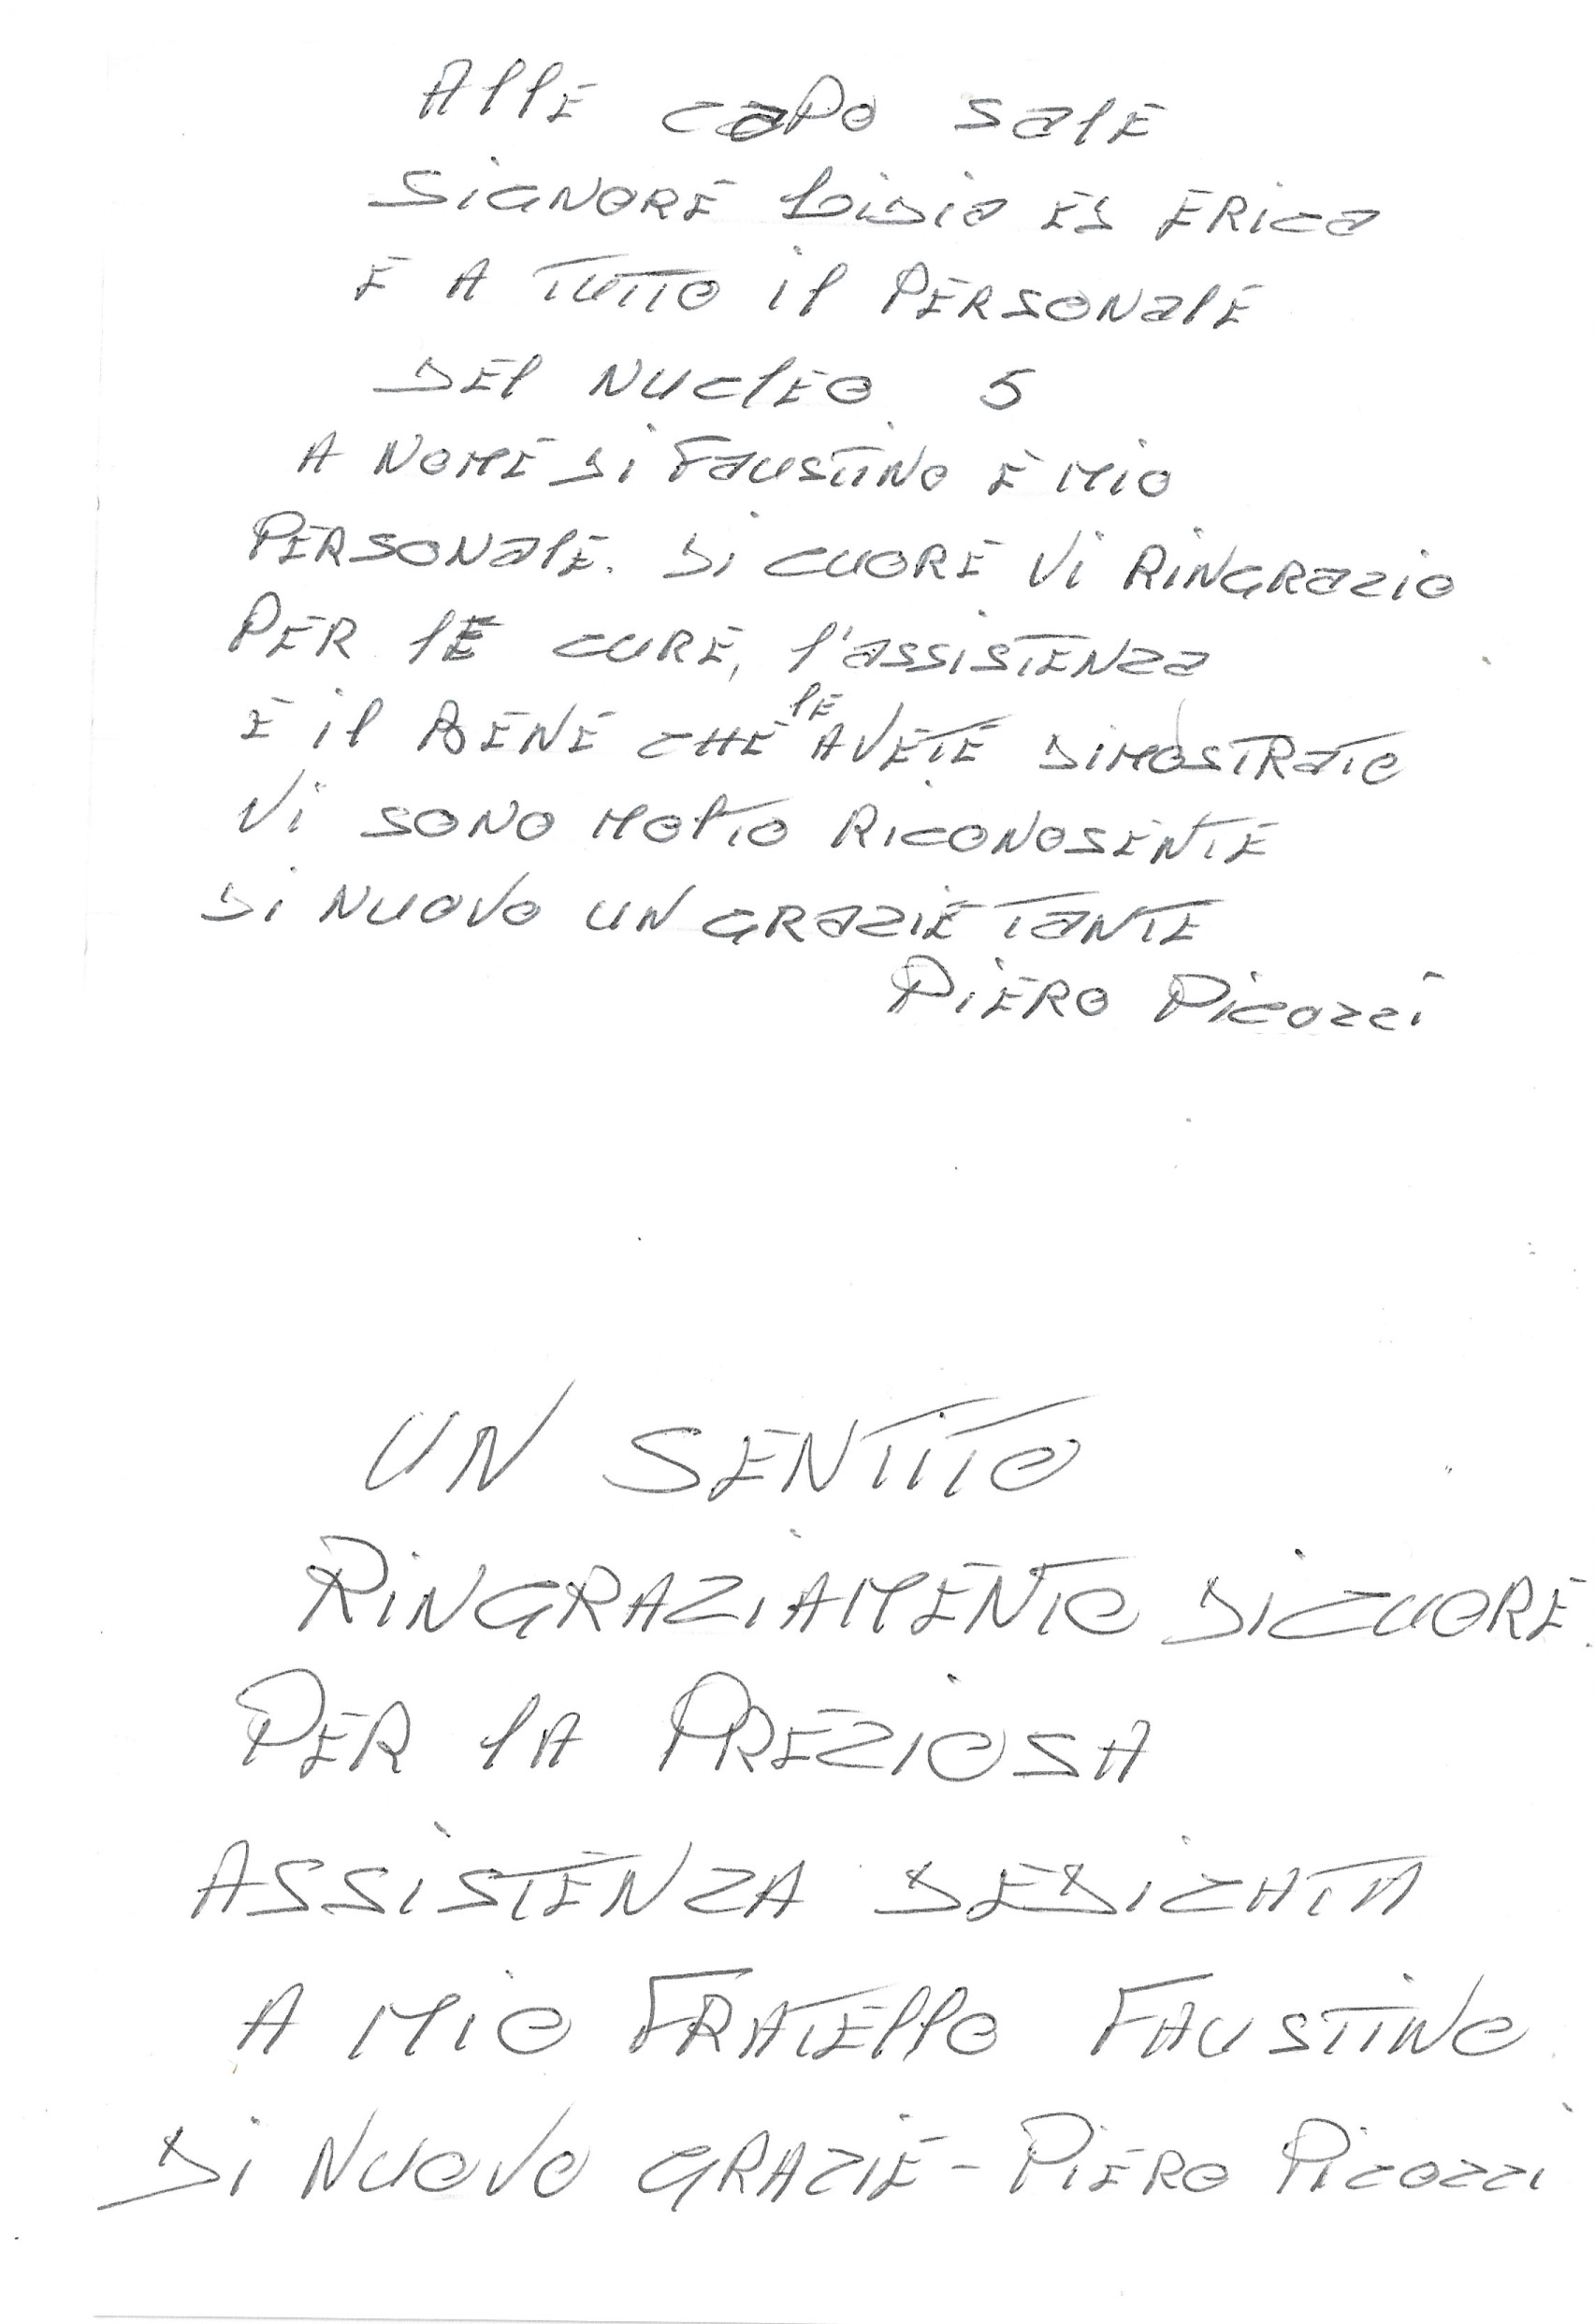 Alle capo sale
Signore Lidia ed Erica
e a tutto il personale
del nucleo 5
a nome di Faustino e mio
personale. Di cuore vi ringrazio
per le cure, l'assistenza
e il bene che le avete dimostrato
vi sono molto riconosente
di nuovo un grazie tante
Piero Picozzi
UN SENTITO
RINGRAZIAMENTO DI CUORE
PER lA PREZIOSA
ASSISTENZA DEDICATA
A MIO FRATEllO FAUSTINO
DI NUOVO GRAZIE - PIERO PICOZZI